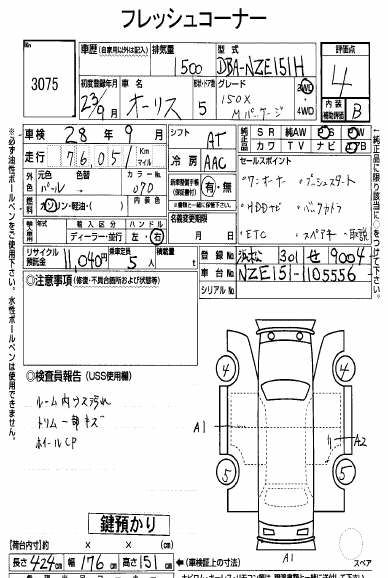 フレッシュコーナー
No.
3075
車歴（自家用以外は記入）
排気量
1500
型式
DBA-NZE151H
評価点
4
初度登録年月
23/9月
車名
オーリス
ドア
5
グレード
150X
Mパッケージ
2WD
4WD
内装
補助評価
B
車検 28年9月
シフト
AT
純正品
SR 純AW PS PW
カワ TV ナビ エアB
走行 76,051 Km マイル
冷房
AAC
外色
元色
パール
色替
カラーNo.
070
燃料
ガソリン・軽油・( )
内装色
有・無
セールスポイント
・ワーオーナー ・プッシュスタート
・HDDナビ ・バックカメラ
・ETC ・スペアキー・取説
輸入区分
ディーラー・並行
ハンドル
左・右
名義変更期限
月 日
リサイクル預託金
11,040円
乗車定員
5人
積載量
t
登録No.
浜松 301 せ 9004
車台No.
NZE151-1105556
シリアルNo.
◎注意事項（修復・不具合箇所および状態等）
◎検査員報告（USS使用欄）
ルーム内ウス汚れ
トリム一部キズ
ホイールCP
鍵預かり
4
4
5
5
A1
A2
A1
スペア
【荷台内寸】
× ×
長さ 424cm 幅 176cm 高さ 151cm
←（車検証上の寸法）
※必ず油性ボールペンをご使用下さい。水性ボールペンは使用できません。